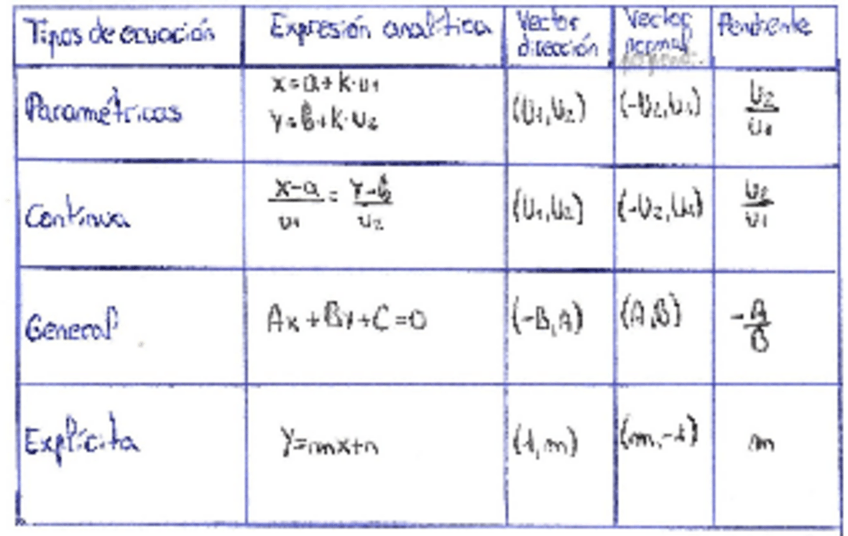 Tipos de ecuación
Expresión analítica
Vector
dirección
Vector
normal
Pendiente
Paramétricas
x=a+k·u₁
y=b+k·u₂
(u₁,u₂)
(-u₂,u₁)
u₂/u₁
Continua
x-a/u₁ = y-b/u₂
(u₁,u₂)
(-u₂,u₁)
u₂/u₁
General
Ax+By+C=0
(-B,A)
(A,B)
-A/B
Explícita
y=mx+n
(1,m)
(m,-1)
m